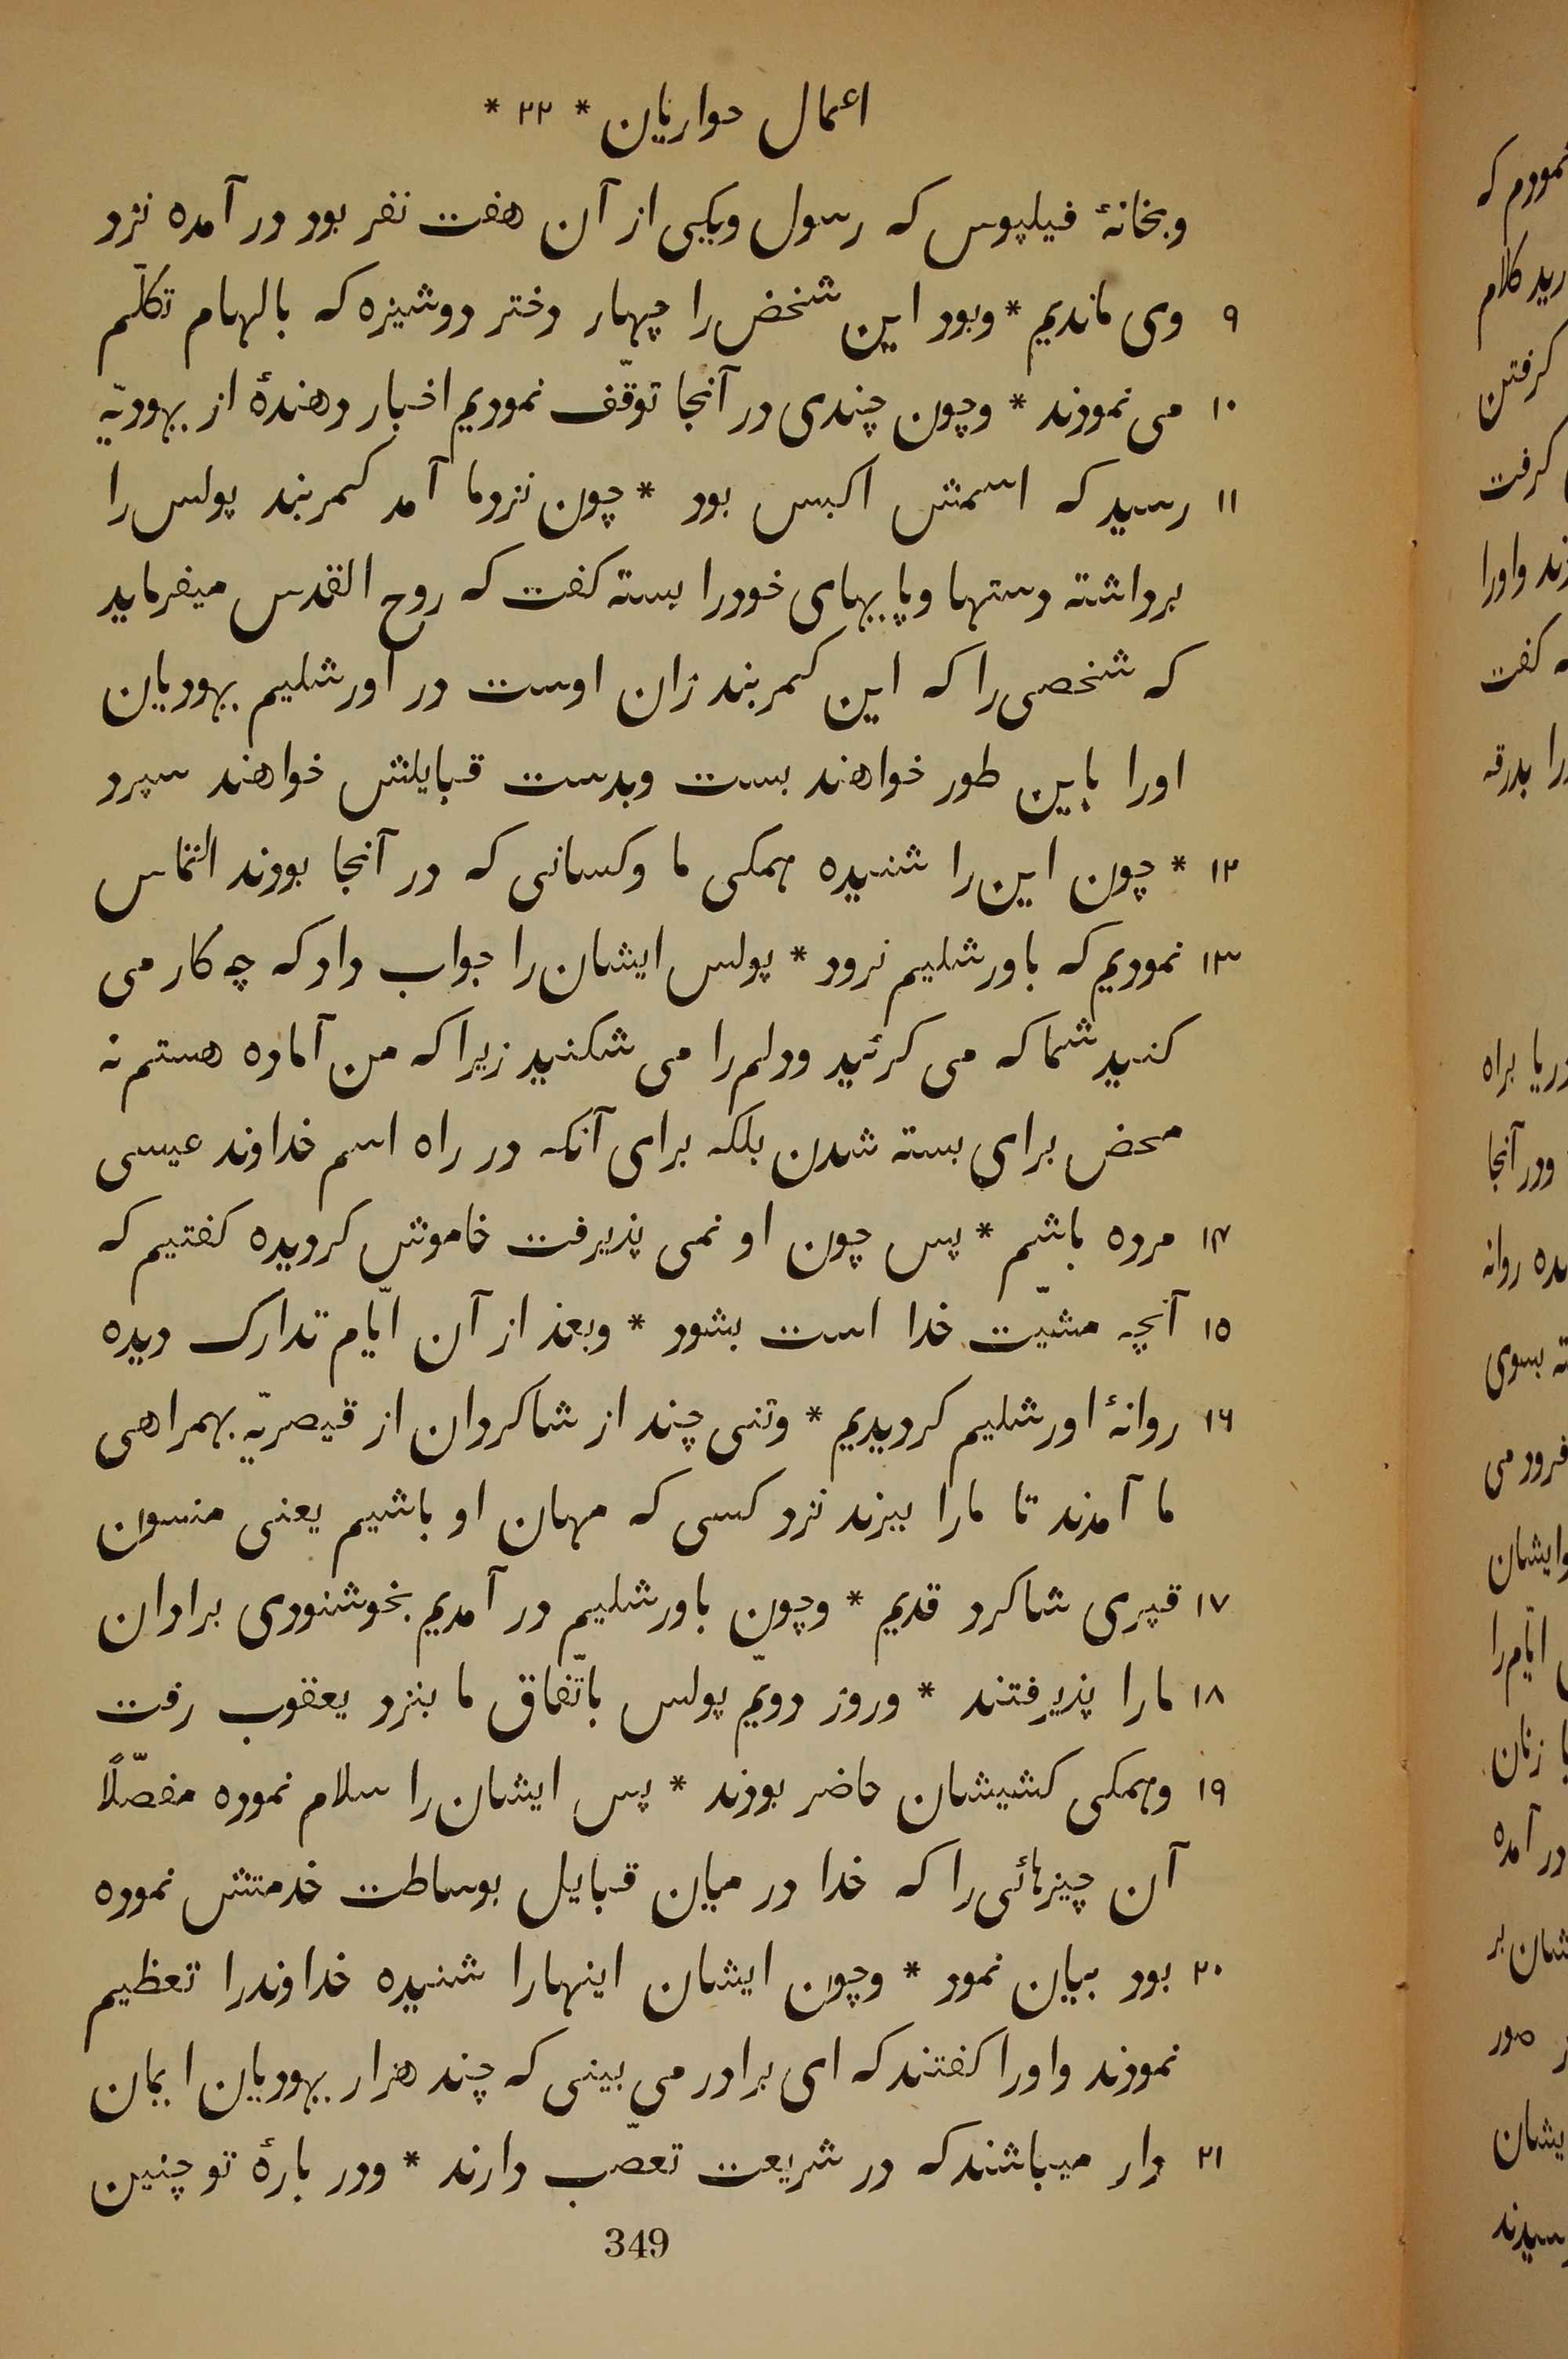 اعمال حواریان * ۲۲ *
وبخانهٔ فیلپوس که رسول ویکی از آن هفت نفر بود در آمده نزد
۹ وی ماندیم * وبود این شخص را چهار دختر دوشیزه که بالهام تکلّم
۱۰ می نمودند * وچون چندی در آنجا توقّف نمودیم اخبار دهندهٔ از یهودیّه
۱۱ رسید که اسمش اکبس بود * چون نزدما آمد کمربند پولس را
برداشته دستها وپایهای خودرا بسته کفت که روح القدس میفرماید
که شخصی را که این کمربند زان اوست در اورشلیم یهودیان
اورا باین طور خواهند بست وبدست قبایلش خواهند سپرد
۱۲ * چون این را شنیده همکی ما وکسانی که در آنجا بودند التماس
۱۳ نمودیم که باورشلیم نرود * پولس ایشان را جواب داد که چه کار می
کنید شما که می کرئید ودلم را می شکنید زیرا که من آماده هستم نه
محض برای بسته شدن بلکه برای آنکه در راه اسم خداوند عیسی
۱۴ مرده باشم * پس چون او نمی پذیرفت خاموش کردیده کفتیم که
۱۵ آنچه مشیّت خدا است بشود * وبعد از آن ایّام تدارک دیده
۱۶ روانهٔ اورشلیم کردیدیم * وتنی چند از شاکردان از قیصریّه بهمراهی
ما آمدند تا مارا ببرند نزد کسی که مهمان او باشیم یعنی منسون
۱۷ قپری شاکرد قدیم * وچون باورشلیم در آمدیم بخوشنودی برادران
۱۸ مارا پذیرفتند * وروز دویّم پولس باتّفاق ما بنزد یعقوب رفت
۱۹ وهمکی کشیشان حاضر بودند * پس ایشان را سلام نموده مفصّلًا
آن چیزهائی را که خدا در میان قبایل بوساطت خدمتش نموده
۲۰ بود بیان نمود * وچون ایشان اینهارا شنیده خداوندرا تعظیم
نمودند واورا کفتند که ای برادر می بینی که چند هزار یهودیان ایمان
۲۱ دار میباشند که در شریعت تعصّب دارند * ودر بارهٔ تو چنین
349